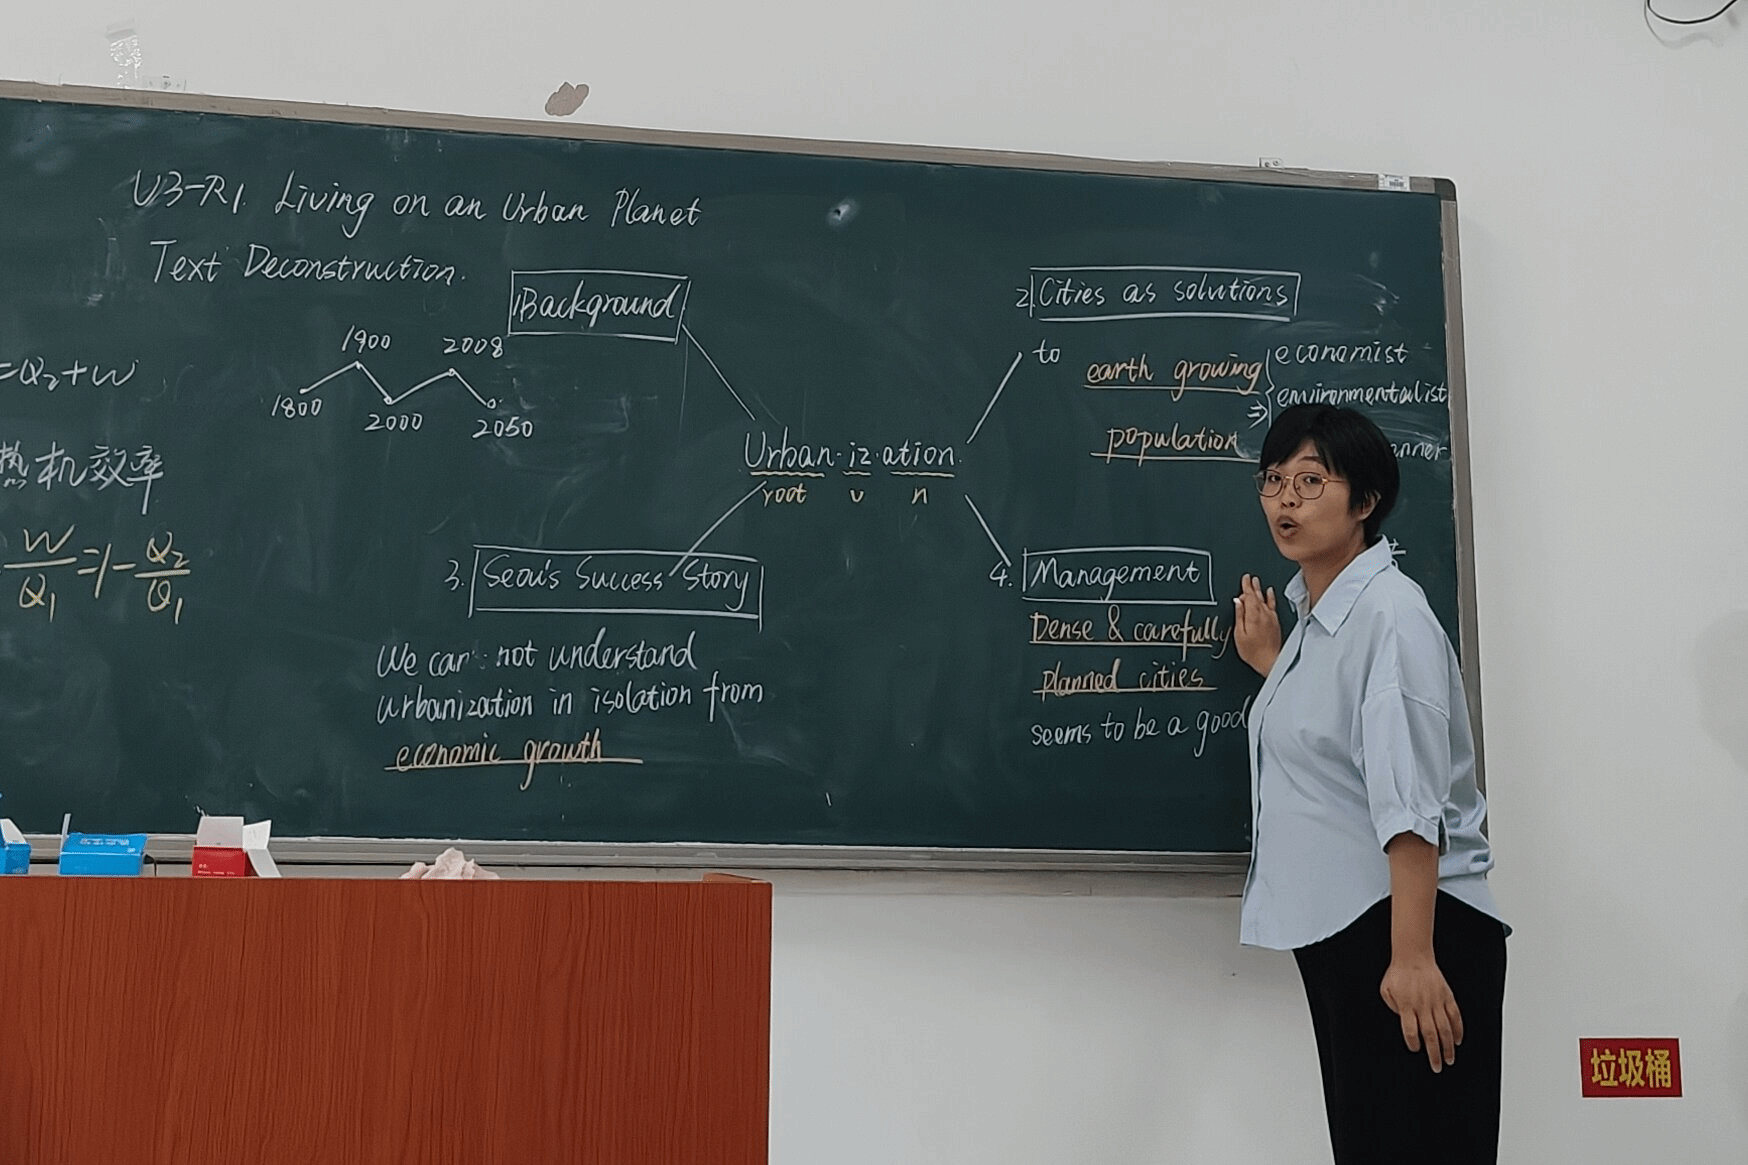 U3-R1. Living on an Urban Planet
Text Deconstruction.
1900
2008
1800
2000
2050
1.Background
2. Cities as solutions
to
earth growing
population
economist
environmentalist
nner
Urban·iz·ation.
root v n
3. Seou's Success Story
We can not understand
urbanization in isolation from
economic growth
4. Management
Dense & carefully
planned cities
seems to be a good
=Q₂+W
热机效率
W/Q₁=1-Q₂/Q₁
垃圾桶